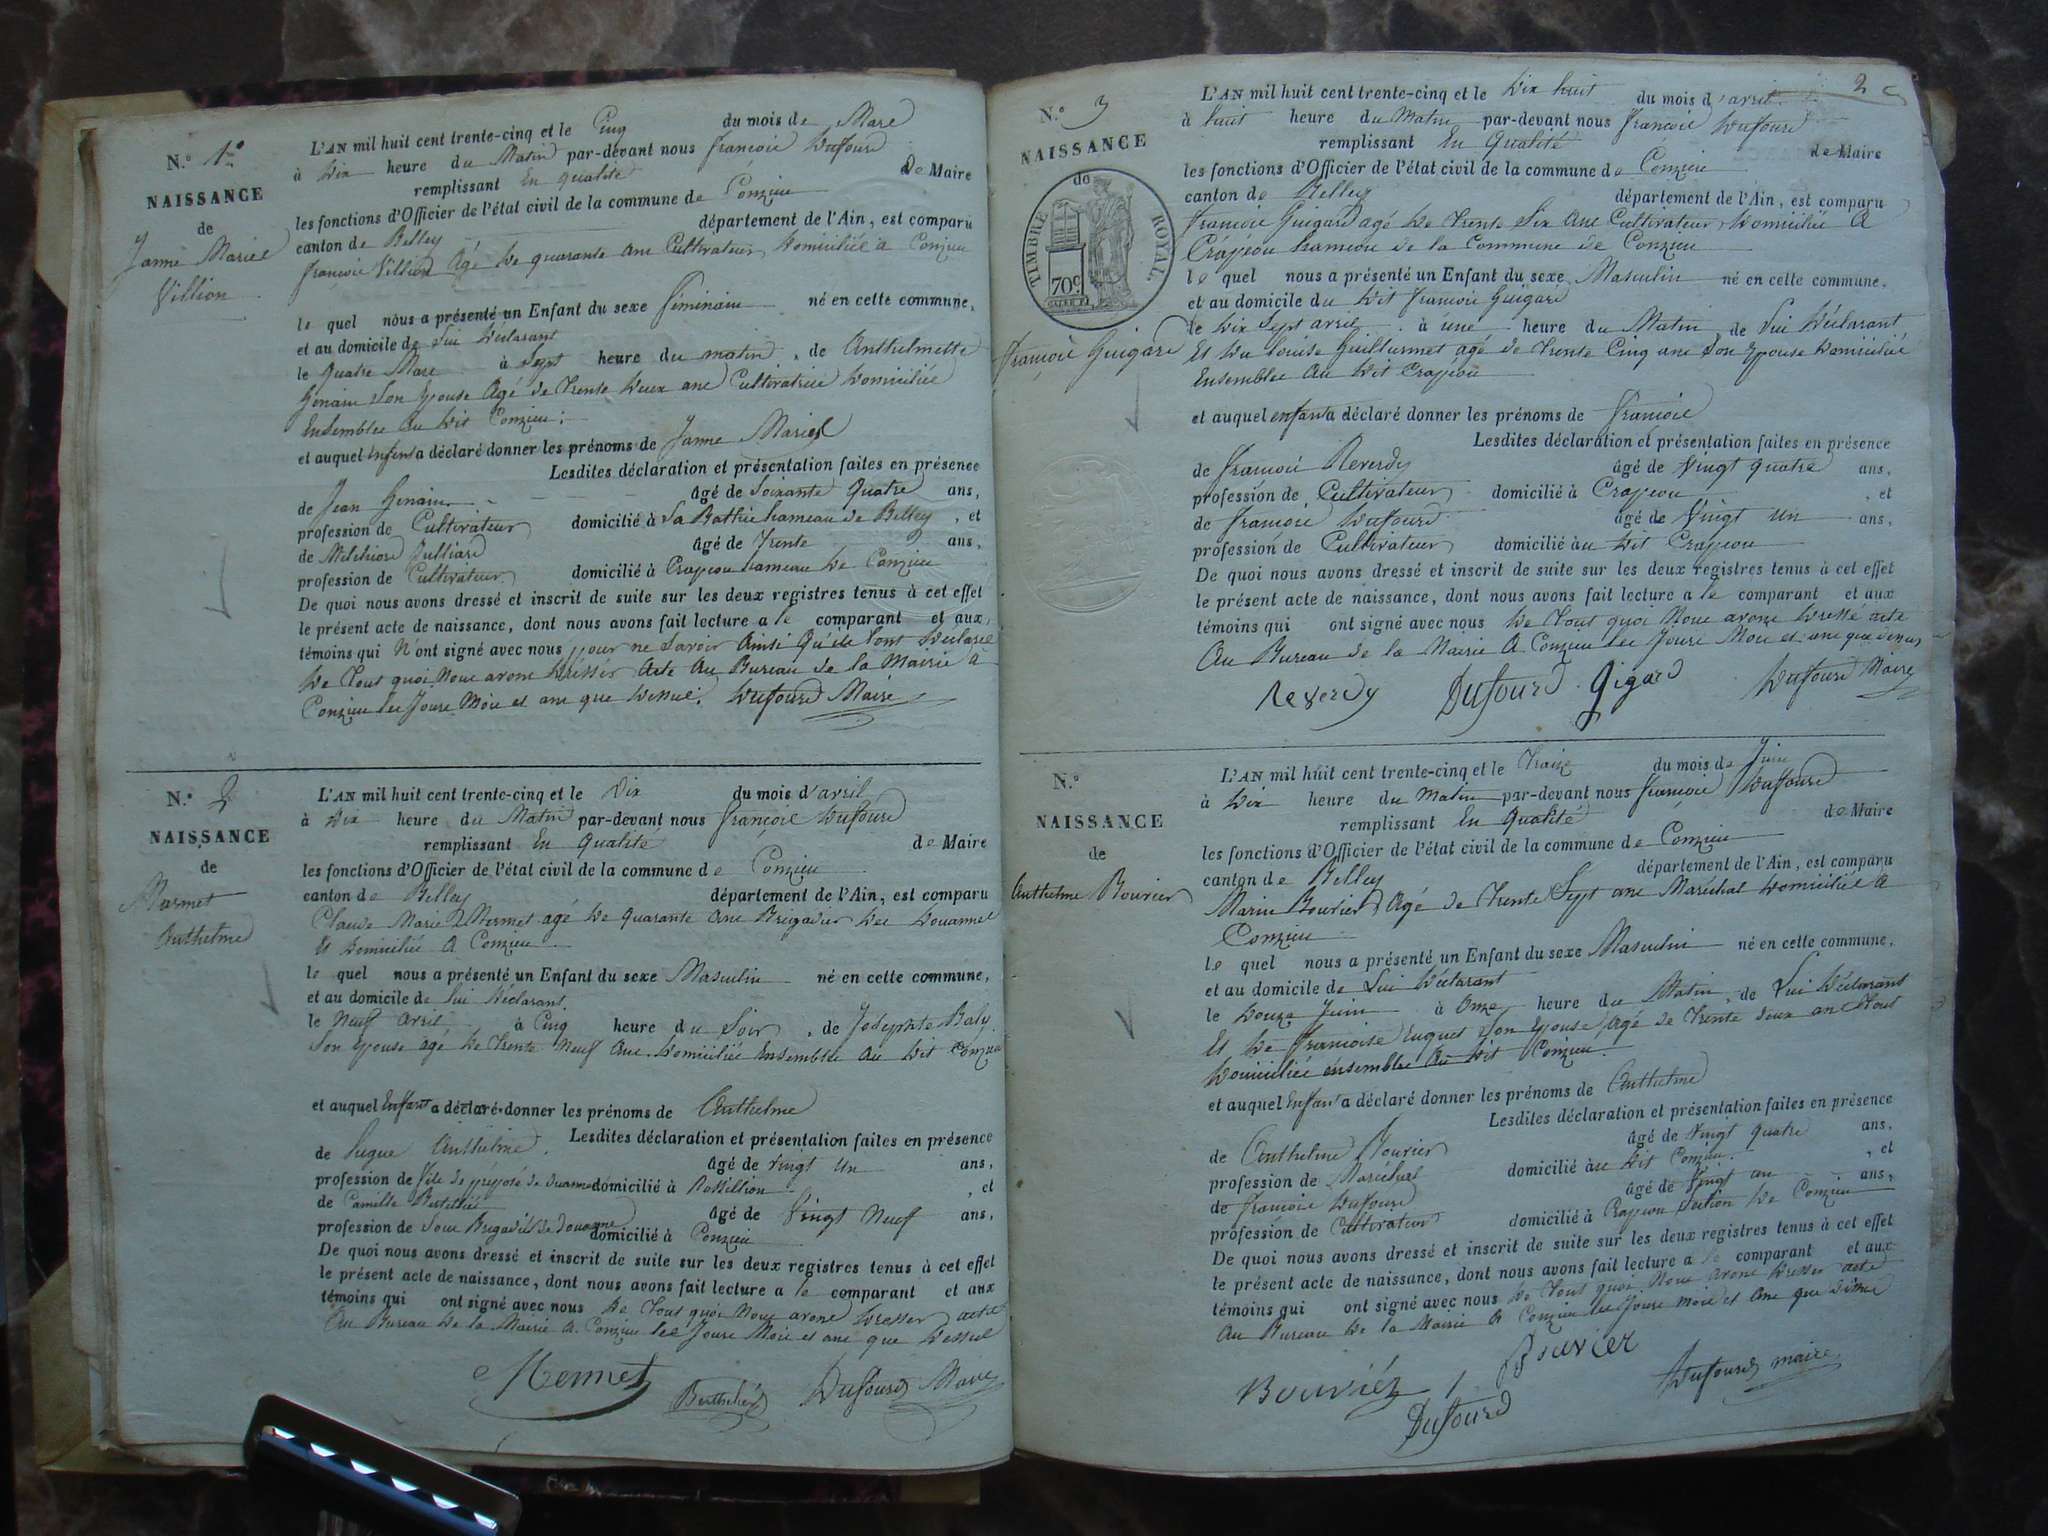 N.° 1.er
NAISSANCE
de
Janne Marie
Villion
L'AN mil huit cent trente-cinq et le Cinq du mois de Mars
à Dix heure du Matin par-devant nous françois Dufourd
remplissant En qualité de Maire
les fonctions d'Officier de l'état civil de la commune de Conzieu
canton de Belley département de l'Ain, est comparu
françois Villion Agé de quarante ans Cultivateur Domicilié à Conzieu
le quel nous a présenté un Enfant du sexe féminain né en cette commune,
et au domicile de Lui Déclarant
le quatre Mars à Sept heure du matin, de Anthelmette
Genain Son Epouse Agé de trente Deux ans Cultivatrice Domiciliée
Ensembles Au dit Conzieu.
et auquel Enfant a déclaré donner les prénoms de Janne Marie
Lesdites déclaration et présentation faites en présence
de Jean Genain âgé de Soixante Quatre ans,
profession de Cultivateur domicilié à La Bathie hameau de Belley, et
de Melchiord Julliard âgé de Trente ans,
profession de Cultivateur domicilié à Crapeou hameau de Conzieu
De quoi nous avons dressé et inscrit de suite sur les deux registres tenus à cet effet
le présent acte de naissance, dont nous avons fait lecture a le comparant et aux
témoins qui N'ont signé avec nous pour ne Savoir Ainsi Qu'ils l'ont Déclaré
De tout quoi Nous avons Dressés Acte Au Bureau de la Mairie à
Conzieu les Jours Mois et ans que Dessus. Dufourd Maire
N.° 2
NAISSANCE
de
Marmet
Anthelme
L'AN mil huit cent trente-cinq et le Dix du mois d'avril
à Dix heure du Matin par-devant nous françois Dufourd
remplissant En Qualité de Maire
les fonctions d'Officier de l'état civil de la commune de Conzieu
canton de Belley département de l'Ain, est comparu
Claude Marie Mermet agé De Quarante Ans Brigadier Des Douannes
Et Domicilié A Conzieu
le quel nous a présenté un Enfant du sexe Masculin né en cette commune,
et au domicile de lui Déclarant
le Neuf avril à Cinq heure du Soir, de Josephte Baly
Son Epouse agé De Trente Neuf Ans Domiciliée Ensembles Au Dit Conzieu
et auquel Enfant a déclaré donner les prénoms de Anthelme
Lesdites déclaration et présentation faites en présence
de Anthelme âgé de Vingt Un ans,
profession de préposé de Duanne domicilié à Rossillion, et
de Camille Berthelié âgé de Vingt Neuf ans,
profession de Sous Brigadié de Douanne domicilié à Conzieu
De quoi nous avons dressé et inscrit de suite sur les deux registres tenus à cet effet
le présent acte de naissance, dont nous avons fait lecture a le comparant et aux
témoins qui ont signé avec nous De tout quoi Nous avons Dresser acte
Au Bureau De la Mairie A Conzieu les Jours Mois et ans que Dessus
Mermet Berthelié Dufourd Maire
2
N.° 3
NAISSANCE
de
TIMBRE ROYAL
70c
françois Guigard
L'AN mil huit cent trente-cinq et le Dix huit du mois d'avril
à huit heure du Matin par-devant nous françois Dufourd
remplissant En Qualité de Maire
les fonctions d'Officier de l'état civil de la commune de Conzieu
canton de Belley département de l'Ain, est comparu
françois Guigard agé de trente Six ans Cultivateur Domicilié A
Crapeou hameou de la Commune de Conzieu
le quel nous a présenté un Enfant du sexe Masculin né en cette commune,
et au domicile du Dit françois Guigard
le Dix Sept avril à une heure du Matin, de Lui Déclarant
Et Du Louise Guillermet agé de trente Cinq ans Son Epouse Domicilié
Ensembles Au Dit Crapeou
et auquel enfant a déclaré donner les prénoms de françois
Lesdites déclaration et présentation faites en présence
de françois Reverdy âgé de Vingt quatre ans,
profession de Cultivateur domicilié à Crapeou, et
de françois Dufourd âgé de Vingt un ans,
profession de Cultivateur domicilié au Dit Crapeou
De quoi nous avons dressé et inscrit de suite sur les deux registres tenus à cet effet
le présent acte de naissance, dont nous avons fait lecture a le comparant et aux
témoins qui ont signé avec nous De tout quoi Nous avons Dressé acte
Au Bureau de la Mairie A Conzieu les Jours Mois et ans que dessus
Reverdy Dufourd Gigard Dufourd Maire
N.°
NAISSANCE
de
Anthelme Bouvier
L'AN mil huit cent trente-cinq et le Traize du mois de Juin
à Dix heure du Matin par-devant nous françois Dufourd
remplissant En Qualité de Maire
les fonctions d'Officier de l'état civil de la commune de Conzieu
canton de Belley département de l'Ain, est comparu
Marin Bouvier Agé de Trente Sept ans Maréchal Domicilié A
Conzieu
le quel nous a présenté un Enfant du sexe Masculin né en cette commune,
et au domicile de Lui Déclarant
le Douze Juin à Onze heure du Matin, de Lui Déclarant
Et De françoise Euguet Son Epouse Agé de Trente deux ans tout
Domiciliés ensembles Au Dit Conzieu.
et auquel Enfant a déclaré donner les prénoms de Anthelme
Lesdites déclaration et présentation faites en présence
de Anthelme Bouvier âgé de Vingt quatre ans,
profession de Maréchal domicilié au Dit Conzieu, et
de françois Dufourd âgé de Vingt un ans,
profession de Cultivateur domicilié à Crapeou Section De Conzieu
De quoi nous avons dressé et inscrit de suite sur les deux registres tenus à cet effet
le présent acte de naissance, dont nous avons fait lecture a le comparant et aux
témoins qui ont signé avec nous De tout quoi Nous avons Dresser acte
Au Bureau De la Mairie A Conzieu les Jours mois et Ans que
Bouvier Bouvier Dufourd Dufourd maire